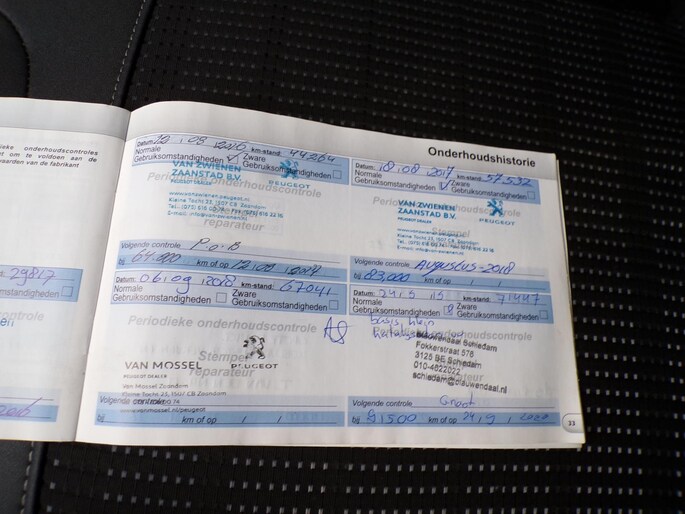 onderhoudscontroles
om te voldoen aan de
waarden van de fabrikant
29817
Gebruiksomstandigheden
Onderhoudshistorie
Datum: 12.09 2016 km-stand: 44264
Normale
Gebruiksomstandigheden
Zware
Gebruiksomstandigheden
VAN ZWIENEN
ZAANSTAD B.V.
PEUGEOT DEALER
PEUGEOT
Periodieke onderhoudscontrole
www.vanzwienen.peugeot.nl
Kleine Tocht 23, 1507 CB Zaandam
reparateur
Volgende controle P.o.B
bij 64.000 km of op 12.09.2017
Datum: 18.08.2017 km-stand: 57532
Normale
Gebruiksomstandigheden
Zware
Gebruiksomstandigheden
VAN ZWIENEN
ZAANSTAD B.V.
PEUGEOT DEALER
PEUGEOT
Stempel
reparateur
Volgende controle Augustus-2018
bij 83.000 km of op
Datum: 06.09.2018 km-stand: 67041
Normale
Gebruiksomstandigheden
Zware
Gebruiksomstandigheden
Periodieke onderhoudscontrole
Stempel
reparateur
VAN MOSSEL
PEUGEOT DEALER
PEUGEOT
Van Mossel Zaandam
Kleine Tocht 23, 1507 CB Zaandam
www.vanmossel.nl/peugeot
Volgende controle
bij km of op
Datum: km-stand: 71447
Normale
Gebruiksomstandigheden
Zware
Gebruiksomstandigheden
basis klein
Blauwendaal Schiedam
Fokkerstraat 576
3125 BE Schiedam
010-4622022
schiedam@blauwendaal.nl
reparateur
Volgende controle Groot
bij 91500 km of op
23